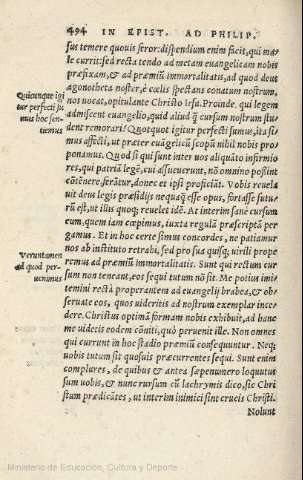 494 IN EPIST. AD PHILIP.
sus temere quouis feror: dispendium enim facit, qui ma-
le currit: sed recta tendo ad metam euangelicam nobis
præfixam, & ad præmiũ immortalitatis, ad quod deus
agonotheta noster, è cœlis spectans conatum nostrum,
nos uocat, opitulante Christo Iesu. Proinde, qui legem
admiscent euangelio, quid aliud q̃ cursum nostrum stu-
dent remorari? Quotquot igitur perfecti sumus, ita si-
mus affecti, ut præter euãgelicũ scopũ nihil nobis pro-
ponamus. Quod si qui sunt inter uos aliquãto infirmio
res, qui patriã legẽ, cui assueuerũt, nõ omnino possint
cõtẽnere, ferãtur, donec et ipsi proficiãt. Vobis reuela
uit deus legis præsidijs nequaq̃ esse opus, fortasse futu-
rũ est, ut illis quoq; reuelet idẽ. At interim sanè cursum
eum, quem iam cœpimus, iuxta regulã præscriptã per
gamus. Et in hoc certè simus concordes, ne patiamur
nos ab instituto retrahi, sed pro sua quisq; uirili prope
remus ad præmiũ immortalitatis. Sunt qui rectum cur
sum non teneant, eos sequi tutum nõ sit. Me potius imi-
temini recta properantem ad euangelij brabea, & ob
seruate eos, quos uideritis ad nostrum exemplar ince-
dere. Christus optimã formam nobis exhibuit, ad hanc
me uidetis eodem cõniti, quò peruenit ille. Non omnes
qui currunt in hoc stadio præmiũ consequuntur. Neq;
uobis tutum sit quosuis præcurrentes sequi. Sunt enim
complures, de quibus & antea sæpenumero loquutus
sum uobis, & nunc rursum cũ lachrymis dico, sic Chri
stum prædicãtes, ut interim inimici sint crucis Christi.
Nolunt
Quicunque igi
tur perfecti su
mus hoc sen-
tiamus
Veruntamen
ad quod per-
uenimus
Ministerio de Educación, Cultura y Deporte